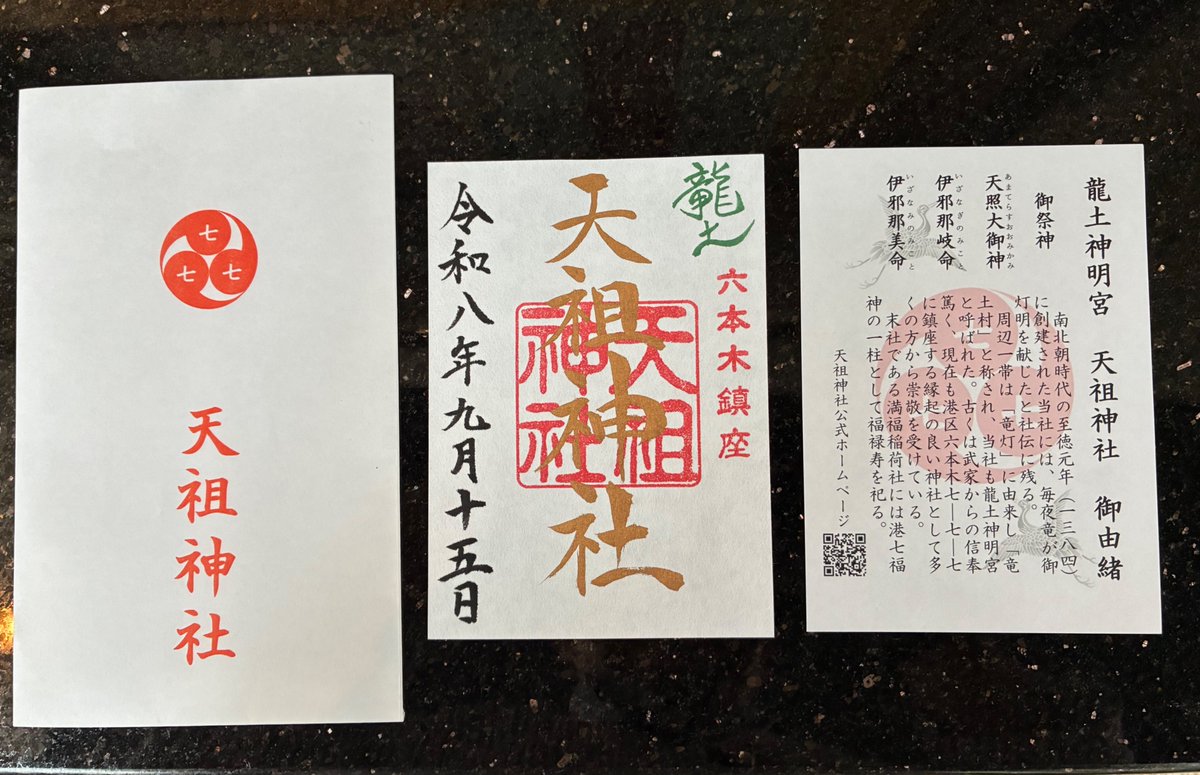 七
七七
天祖神社
龍土
六本木鎮座
天祖神社
天祖
神社
令和八年九月十五日
龍土神明宮 天祖神社 御由緒
御祭神
あまてらすおおみかみ
天照大御神
いざなぎのみこと
伊邪那岐命
いざなみのみこと
伊邪那美命
南北朝時代の至徳元年(一三八四)
に創建された当社には、毎夜竜が御
灯明を献じたと社伝に残る。
周辺一帯は「竜灯」に由来し「竜
土村」と称され、当社も龍土神明宮
と呼ばれた。古くは武家からの信奉
篤く、現在も港区六本木七―七―七
に鎮座する縁起の良い神社として多
くの方から崇敬を受けている。
末社である満福稲荷社には港七福
神の一柱として福禄寿を祀る。
天祖神社公式ホームページ